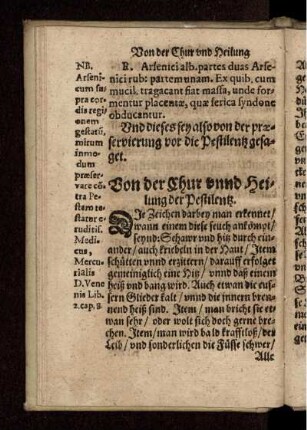 Von der Chur vnd Heilung
NB.
Arseni-
cum su-
pra cor-
dis regi-
onem
gestatũ,
mirum
inmo-
dum
præser-
vare cõ-
tra Pe-
stem te-
stater e-
ruditiss.
Modi-
cus,
Mercu-
rialis
D. Vene-
nis Lib.
2. cap. 8.
R. Arsenici alb. partes duas Arse-
nici rub: partem unam. Ex quib, cum
mucil. tragacant fiat massa, unde for-
mentur placentæ, quæ serica syndone
obducantur.
Vnd dieses sey also von der præ-
servierung vor die Pestilentz gesa-
get.
Von der Chur vnnd Hei-
lung der Pestilentz.
DIe Zeichen darbey man erkennet/
wann einem diese seuch ankompt/
seynd: Schawr vnd hitz durch ein-
ander/ auch kriebeln in der Haut/ Item
schüttern vnnd erzittern/ darauff erfolget
gemeiniglich eine Hitz/ vnnd daß einem
heiß vnd bang wird. Auch etwan die eus-
sern Glieder kalt/ vnnd die innern bren-
nend heiß sind. Item/ man bricht sie et-
wan sehr/ oder wolt sich doch gerne bre-
chen. Item/ man wird bald krafftloß/ der
Leib/ vnd sonderlichen die Füsse schwer/
Alle